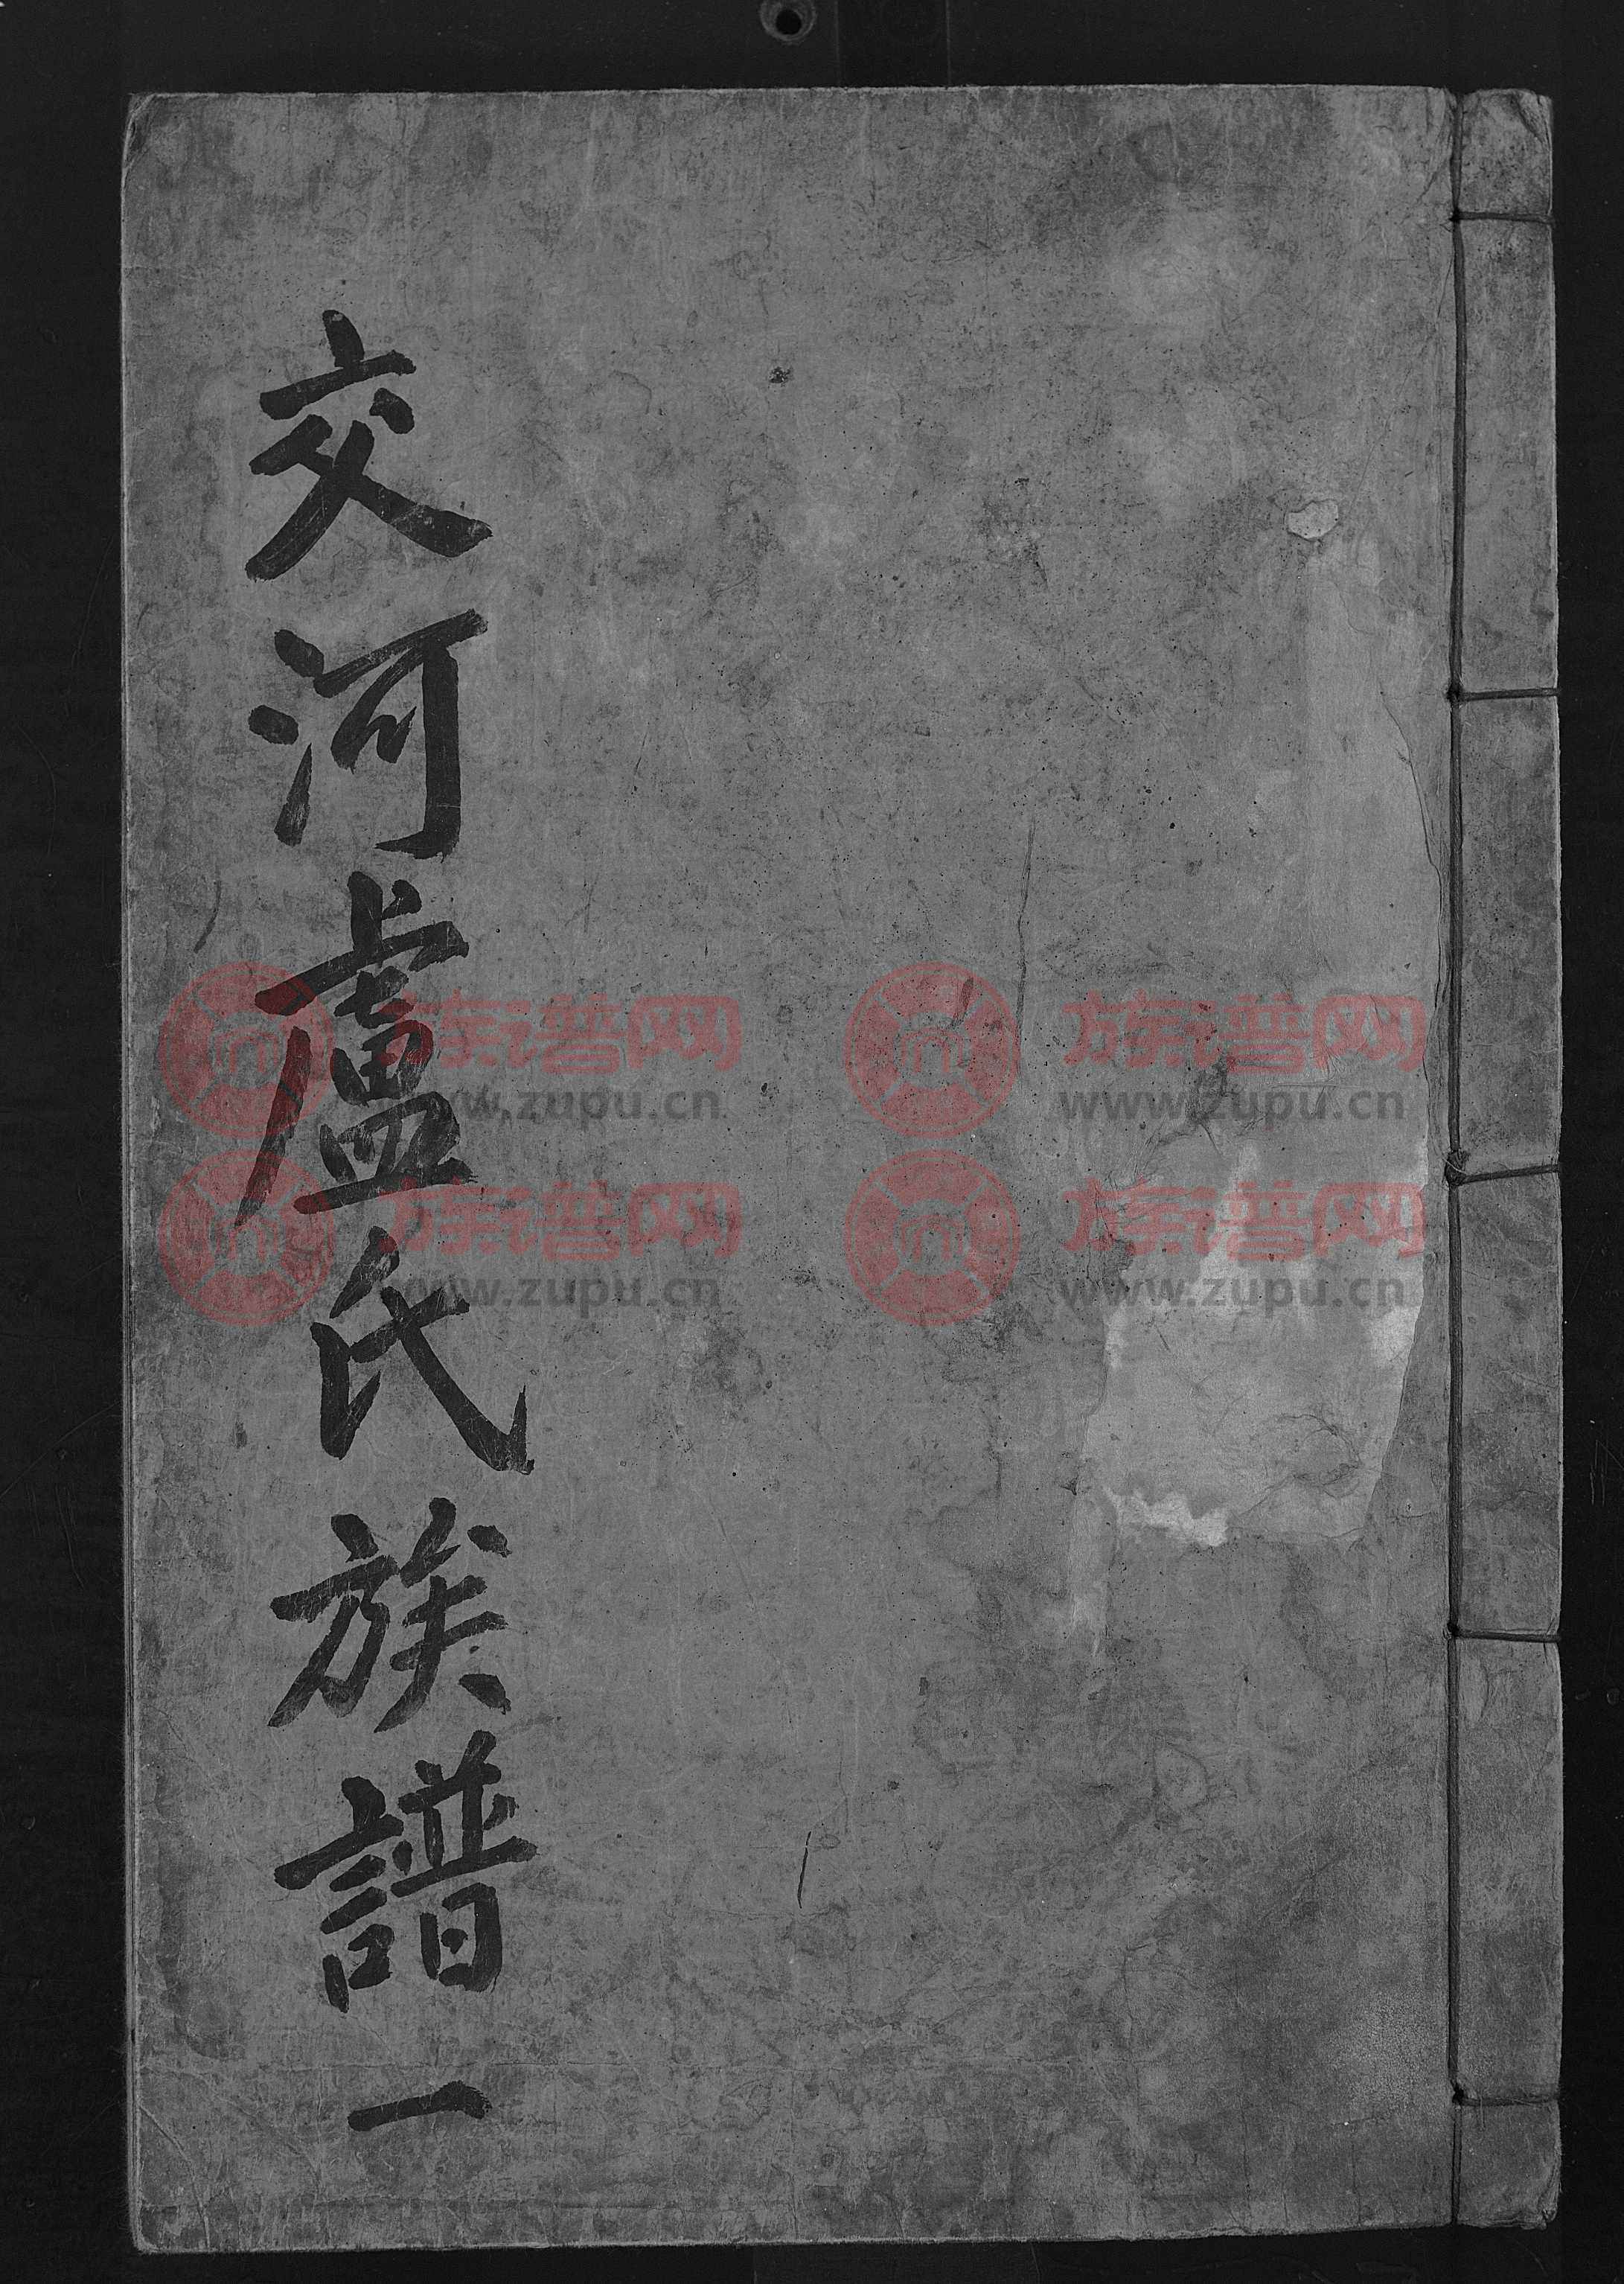 交河盧氏族譜一
族谱网
www.zupu.cn
族谱网
www.zupu.cn
族谱网
www.zupu.cn
族谱网
www.zupu.cn